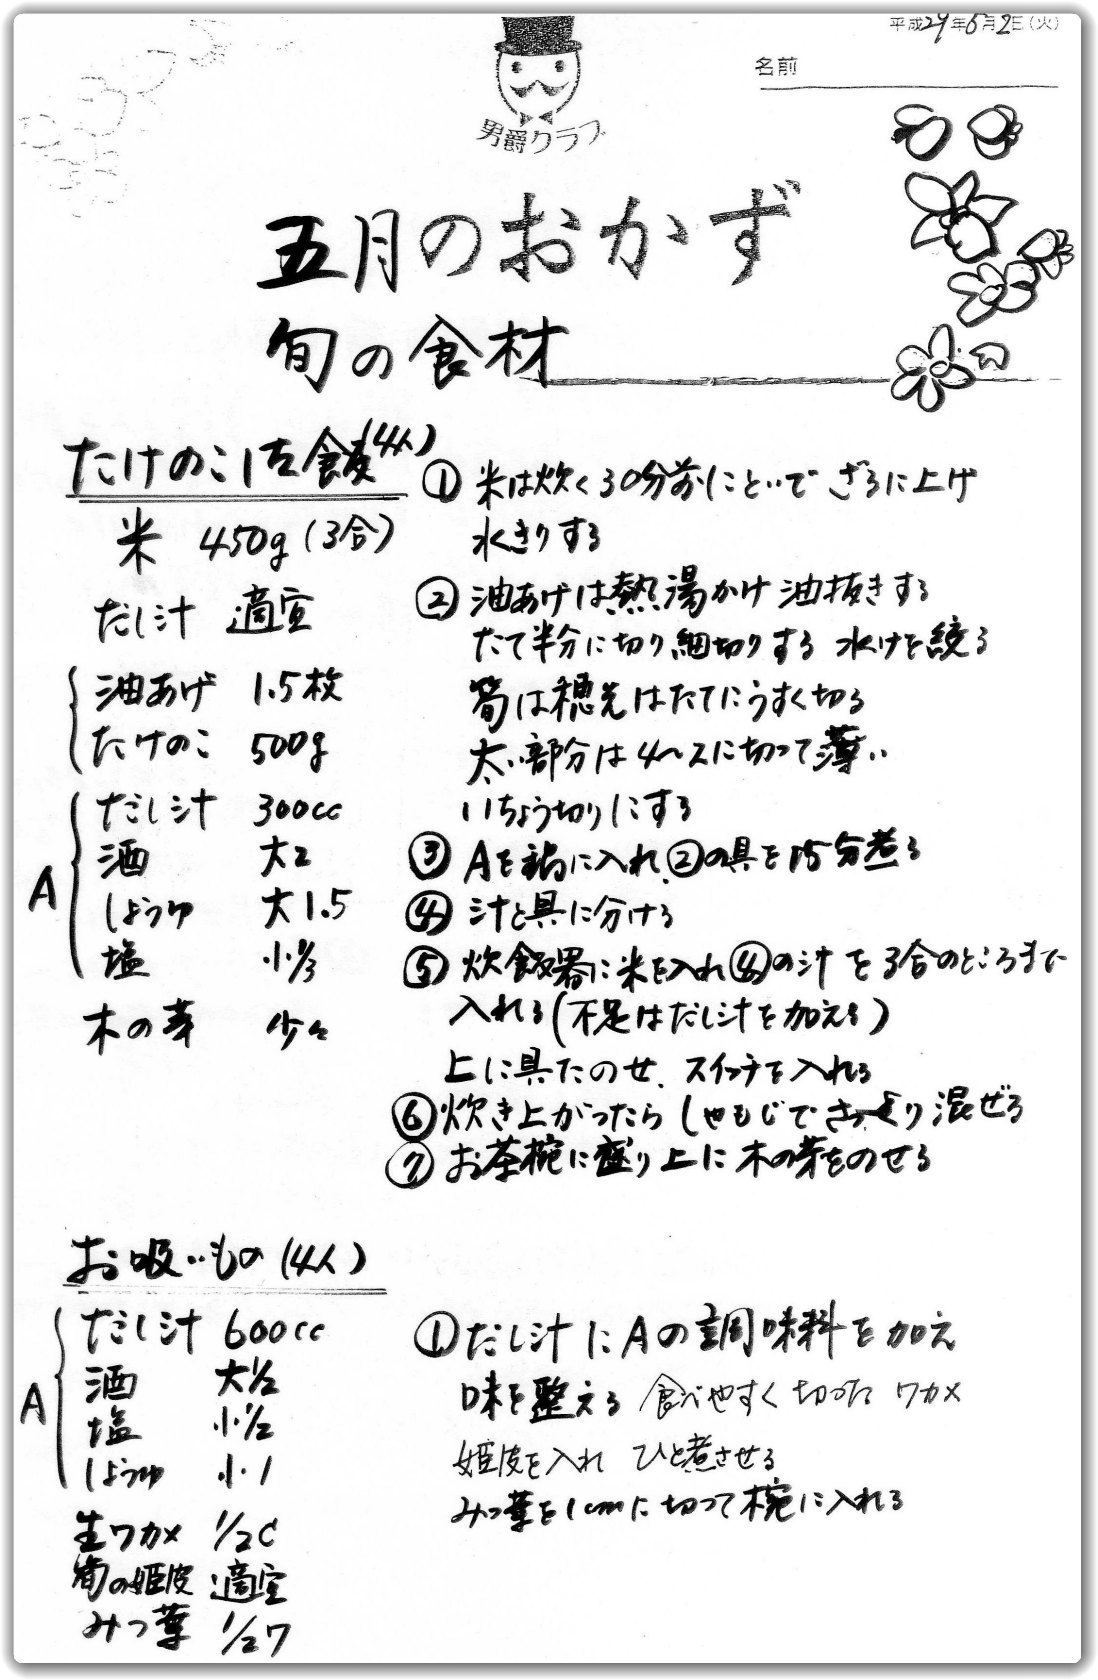 平成29年5月2日(火)
名前
男爵クラブ
五月のおかず
旬の食材
たけのこご飯(4人)
米 450g(3合)
だし汁 適宜
油あげ 1.5枚
たけのこ 500g
A
だし汁 300cc
酒 大2
しょうゆ 大1.5
塩 小1/3
木の芽 少々
① 米は炊く30分前にといで ざるに上げ
水きりする
② 油あげは熱湯かけ 油抜きする
たて半分に切り細切りする 水けを絞る
筍は穂先はたてにうすく切る
太い部分は4〜5に切って薄い
いちょう切りにする
③ Aを鍋に入れ、②の具を15分煮る
④ 汁と具に分ける
⑤ 炊飯器に米を入れ④の汁を3合のところまで
入れる(不足はだし汁を加える)
上に具をのせ、スイッチを入れる
⑥ 炊き上がったら しゃもじでさっくり混ぜる
⑦ お茶椀に盛り上に木の芽をのせる
お吸いもの(4人)
A
だし汁 600cc
酒 大1/2
塩 小1/2
しょうゆ 小1
生ワカメ 1/2C
筍の姫皮 適宜
みつ葉 1/2ワ
① だし汁にAの調味料を加え
味を整える 食べやすく切った ワカメ
姫皮を入れ ひと煮させる
みつ葉を1cmに切って椀に入れる